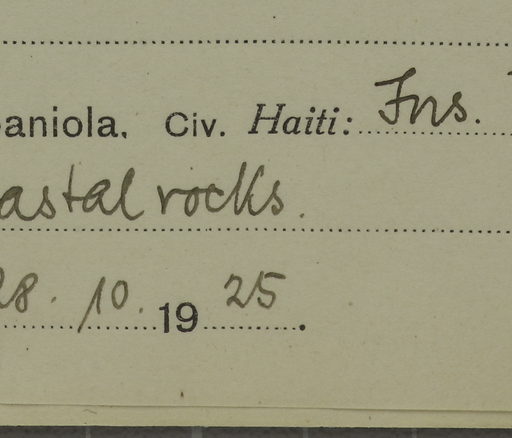 aniola. Civ. Haiti: Ins.
astal rocks.
28. 10. 1925.